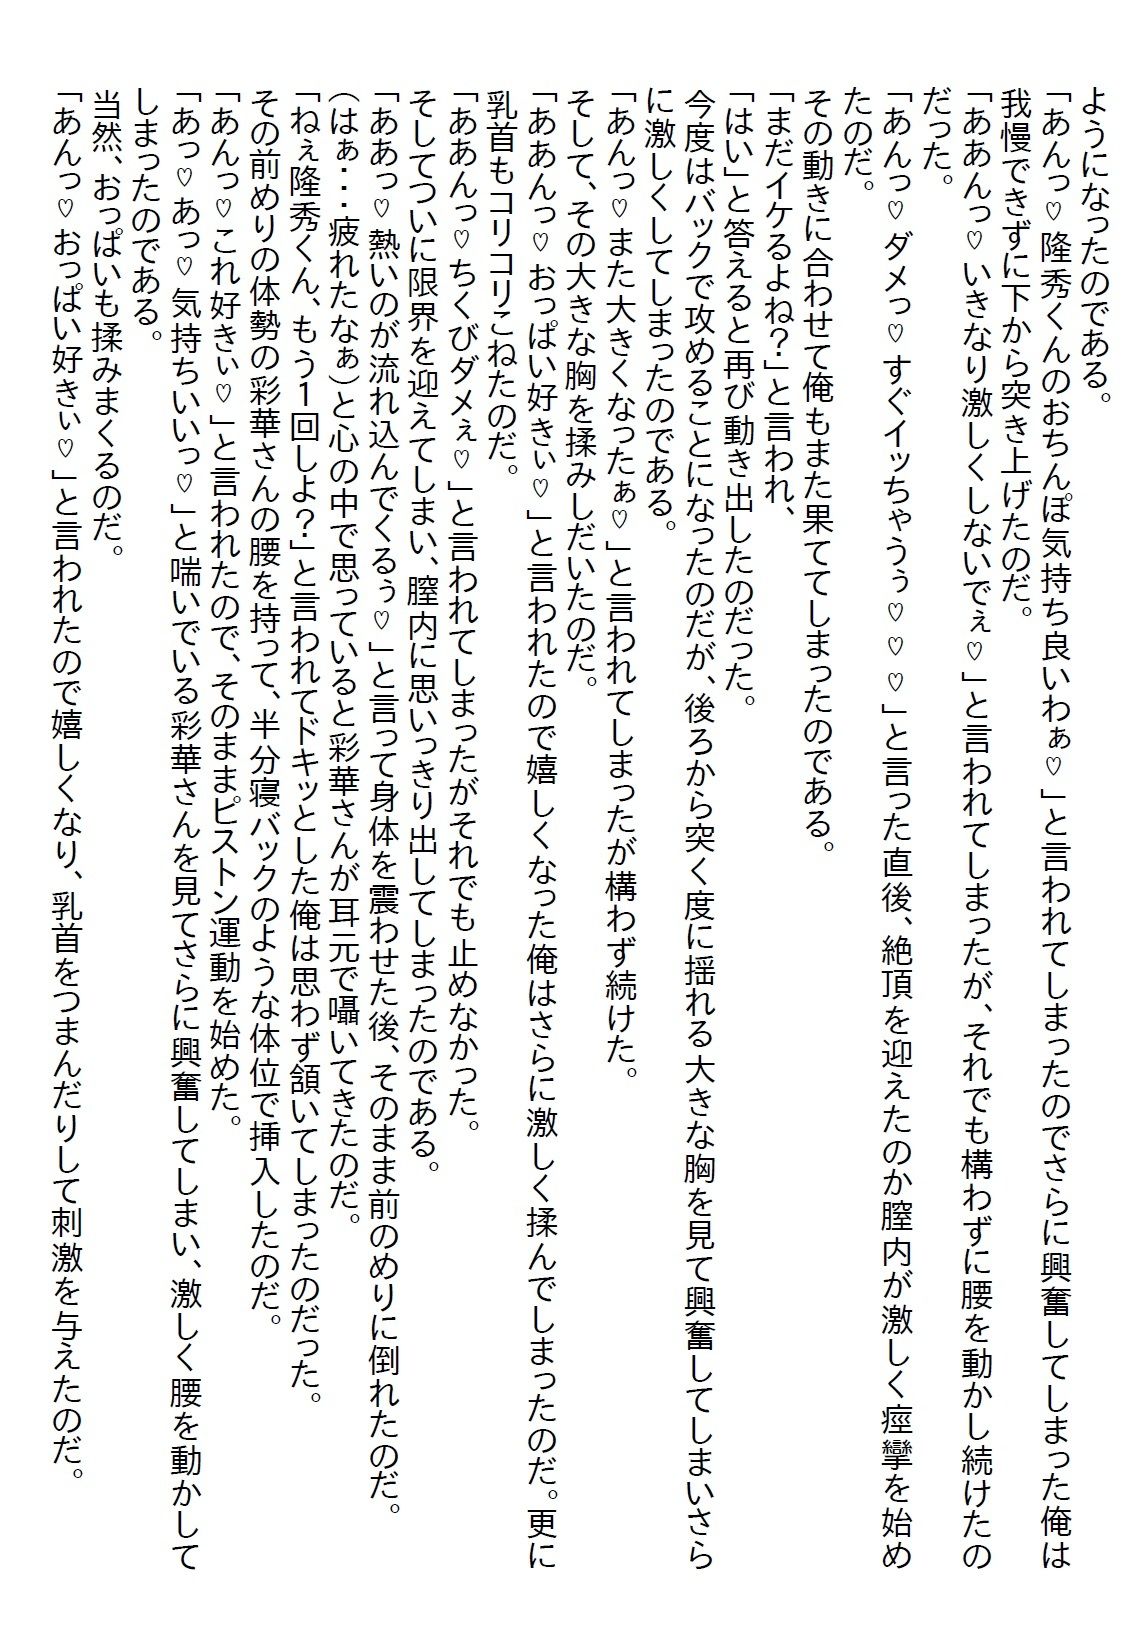 ようになったのである。
「あんっ♡隆秀くんのおちんぽ気持ち良いわぁ♡」と言われてしまったのでさらに興奮してしまった俺は
我慢できずに下から突き上げたのだ。
「ああんっ♡いきなり激しくしないでぇ♡」と言われてしまったが、それでも構わずに腰を動かし続けたの
だった。
「あんっ♡ダメっ♡すぐイッちゃうぅ♡♡♡」と言った直後、絶頂を迎えたのか膣内が激しく痙攣を始め
たのだ。
その動きに合わせて俺もまた果ててしまったのである。
「まだイケるよね？」と言われ、
「はい」と答えると再び動き出したのだった。
今度はバックで攻めることになったのだが、後ろから突く度に揺れる大きな胸を見て興奮してしまいさら
に激しくしてしまったのである。
「あんっ♡また大きくなったぁ♡」と言われてしまったが構わず続けた。
そして、その大きな胸を揉みしだいたのだ。
「ああんっ♡おっぱい好きぃ♡」と言われたので嬉しくなった俺はさらに激しく揉んでしまったのだ。更に
乳首もコリコリこねたのだ。
「ああんっ♡ちくびダメぇ♡」と言われてしまったがそれでも止めなかった。
そしてついに限界を迎えてしまい、膣内に思いっきり出してしまったのである。
「ああっ♡熱いのが流れ込んでくるぅ♡」と言って身体を震わせた後、そのまま前のめりに倒れたのだ。
（はぁ・・・疲れたなぁ）と心の中で思っていると彩華さんが耳元で囁いてきたのだ。
「ねぇ隆秀くん、もう１回しよ？」と言われてドキッとした俺は思わず頷いてしまったのだった。
その前めりの体勢の彩華さんの腰を持って、半分寝バックのような体位で挿入したのだ。
「あんっ♡これ好きぃ♡」と言われたので、そのままピストン運動を始めた。
「あっ♡あっ♡気持ちいいっ♡」と喘いでいる彩華さんを見てさらに興奮してしまい、激しく腰を動かして
しまったのである。
当然、おっぱいも揉みまくるのだ。
「あんっ♡おっぱい好きぃ♡」と言われたので嬉しくなり、乳首をつまんだりして刺激を与えたのだ。